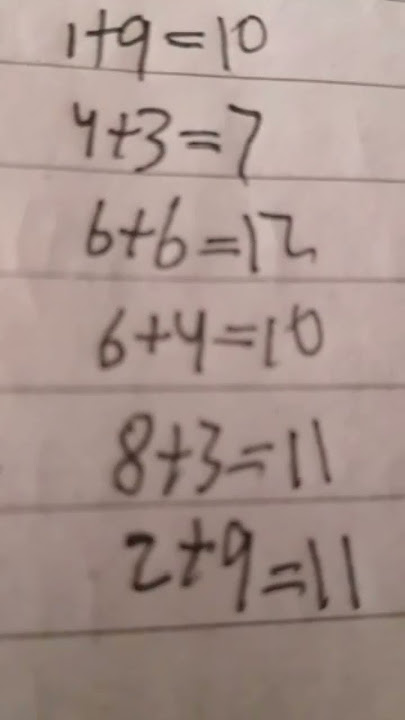 1+9=10
4+3=7
6+6=12
6+4=10
8+3=11
2+9=11